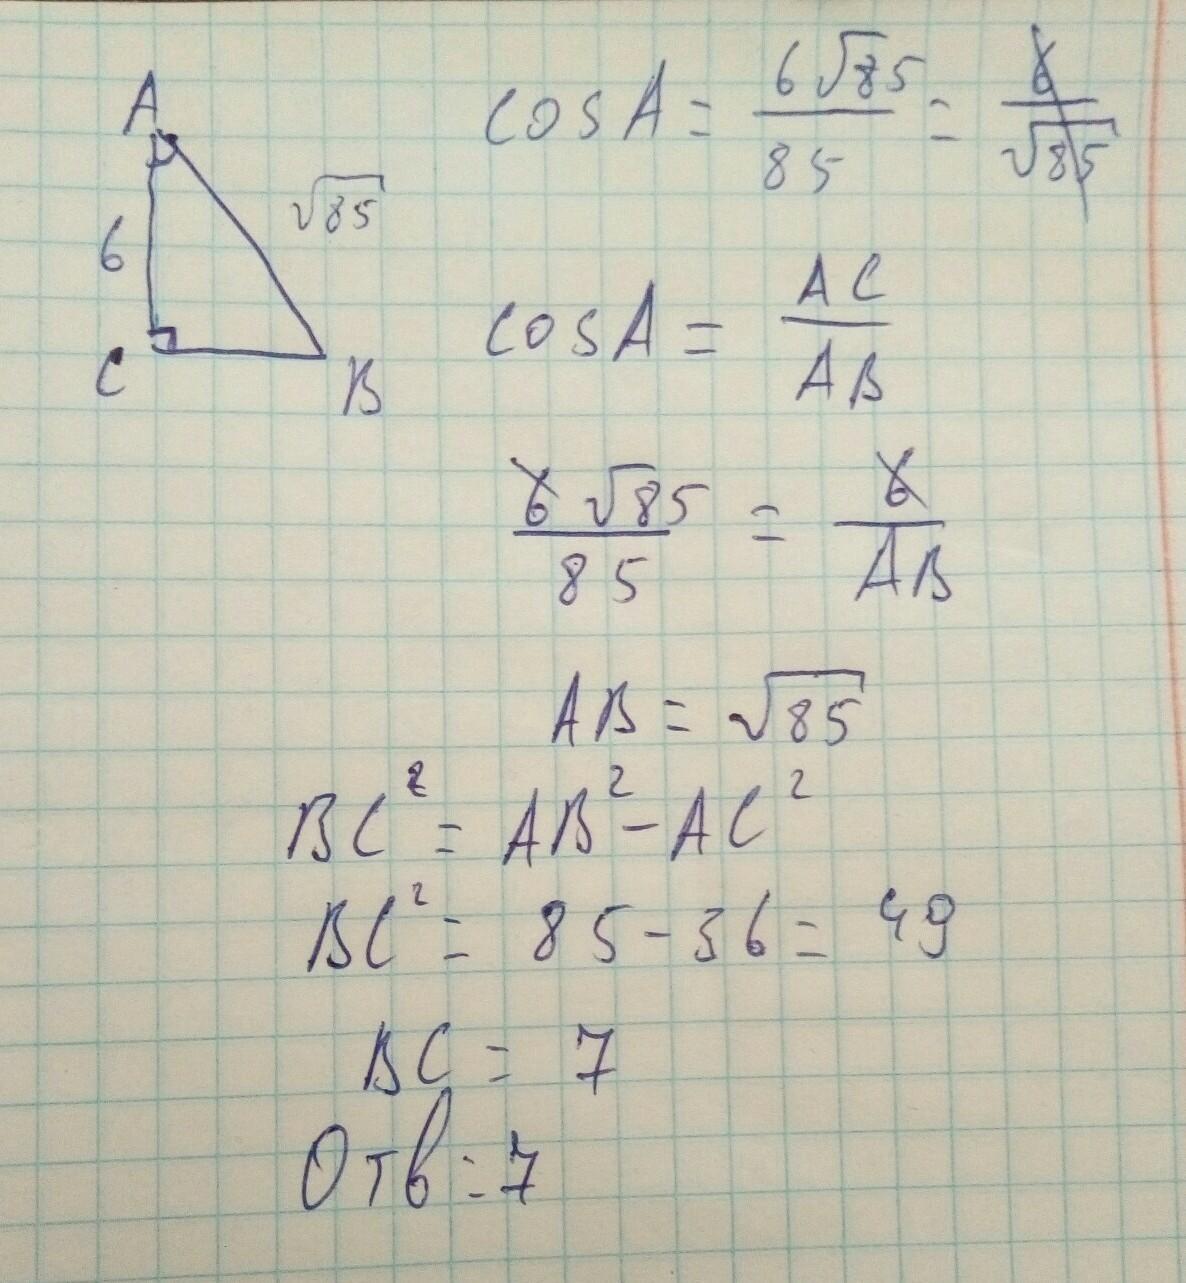 A
6
√85
C
B
cos A = 6√85/85 = 6/√85
cos A = AC/AB
6√85/85 = 6/AB
AB = √85
BC² = AB² - AC²
BC² = 85 - 36 = 49
BC = 7
Отв: 7